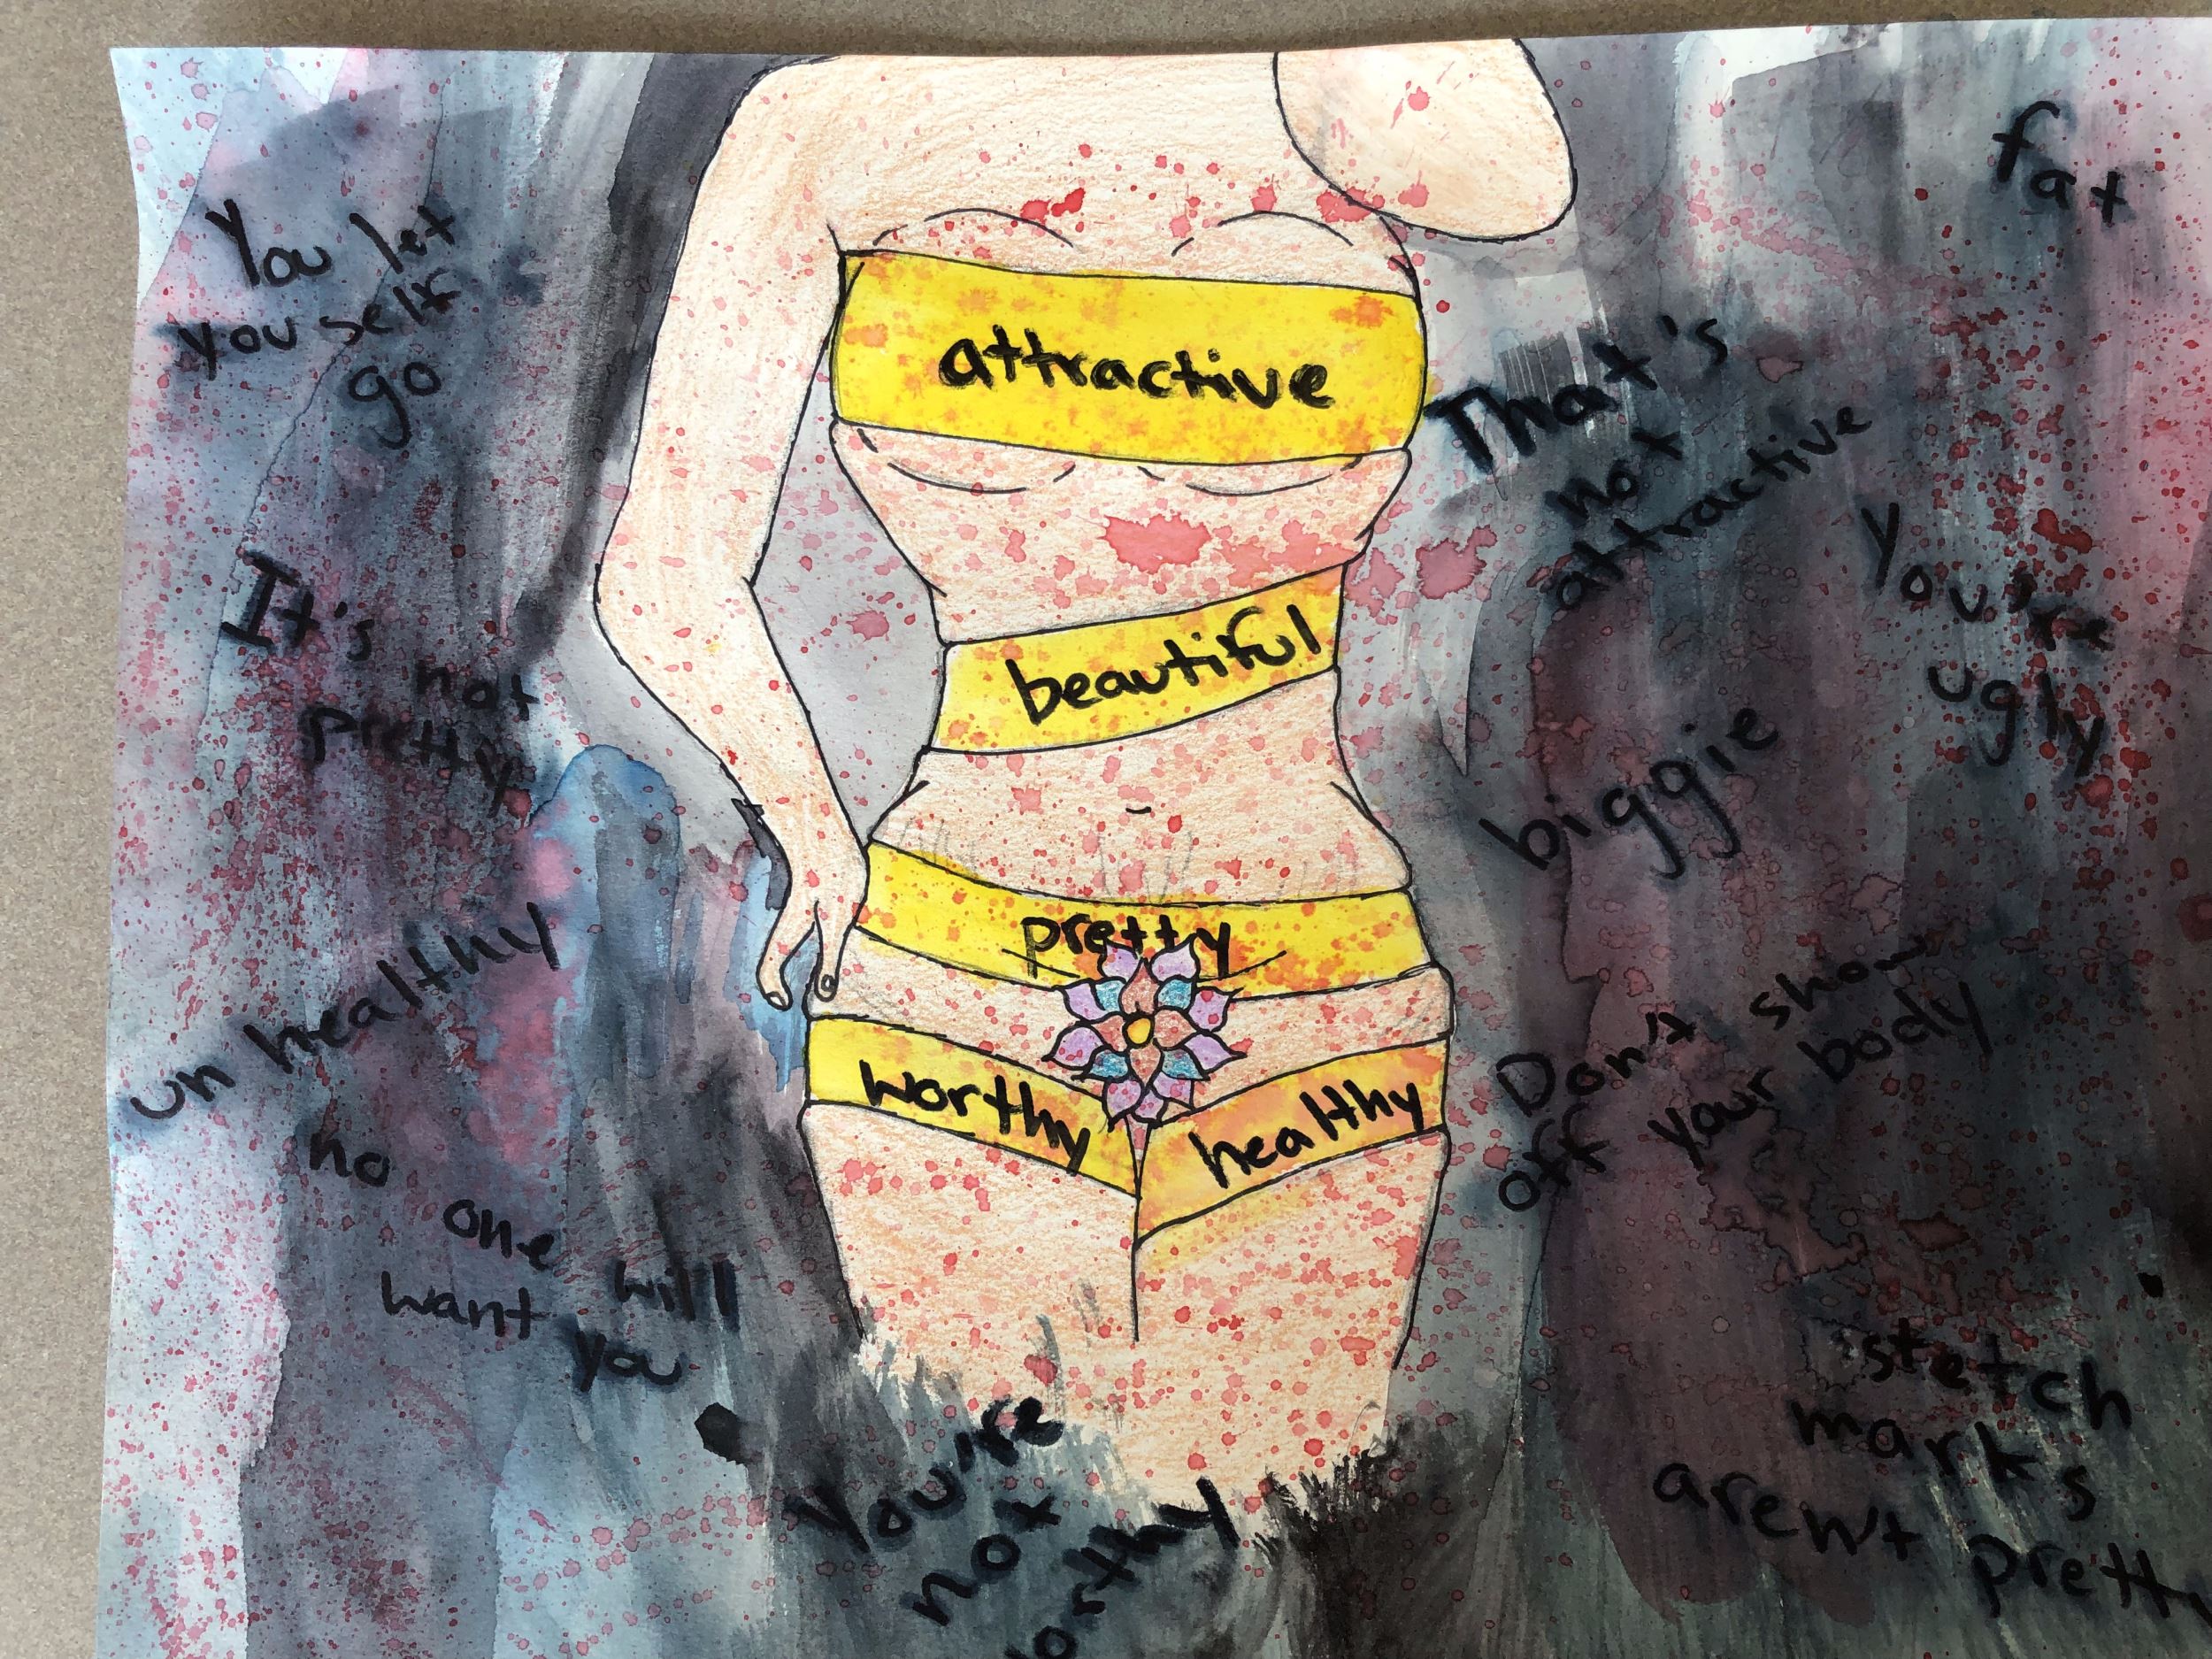 You let
you self
go
It's not
pretty
un healthy
no one
will
want you
attractive
beautiful
pretty
worthy
healthy
You're
not
worthy
fat
That's
not
attractive
You're
ugly
biggie
Don't show
off your body
stetch
marks
aren't pretty